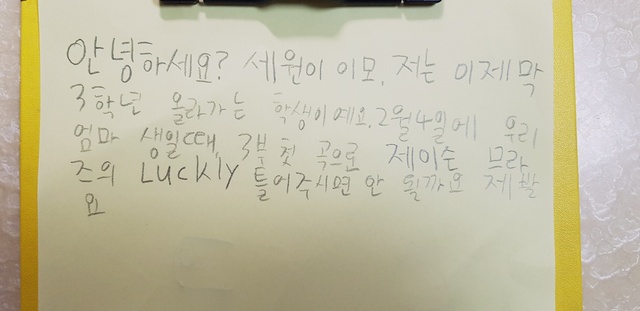 안녕하세요? 세원이 이모, 저는 이제 막
3학년 올라가는 학생이예요. 2월4일에 우리
엄마 생일때, 3부 첫 곡으로 제이슨 므라
즈의 Luckly 틀어주시면 안 될까요 제발
요